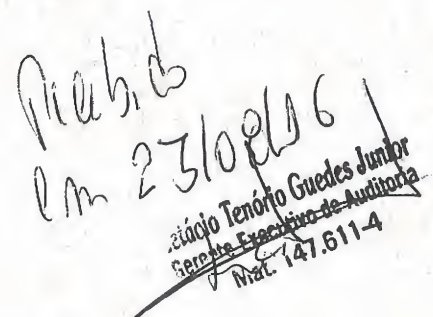 Recebido
em 23/08/16
Tenório Guedes Junior
Gerente Executivo de Auditoria
Mat. 147.611-4